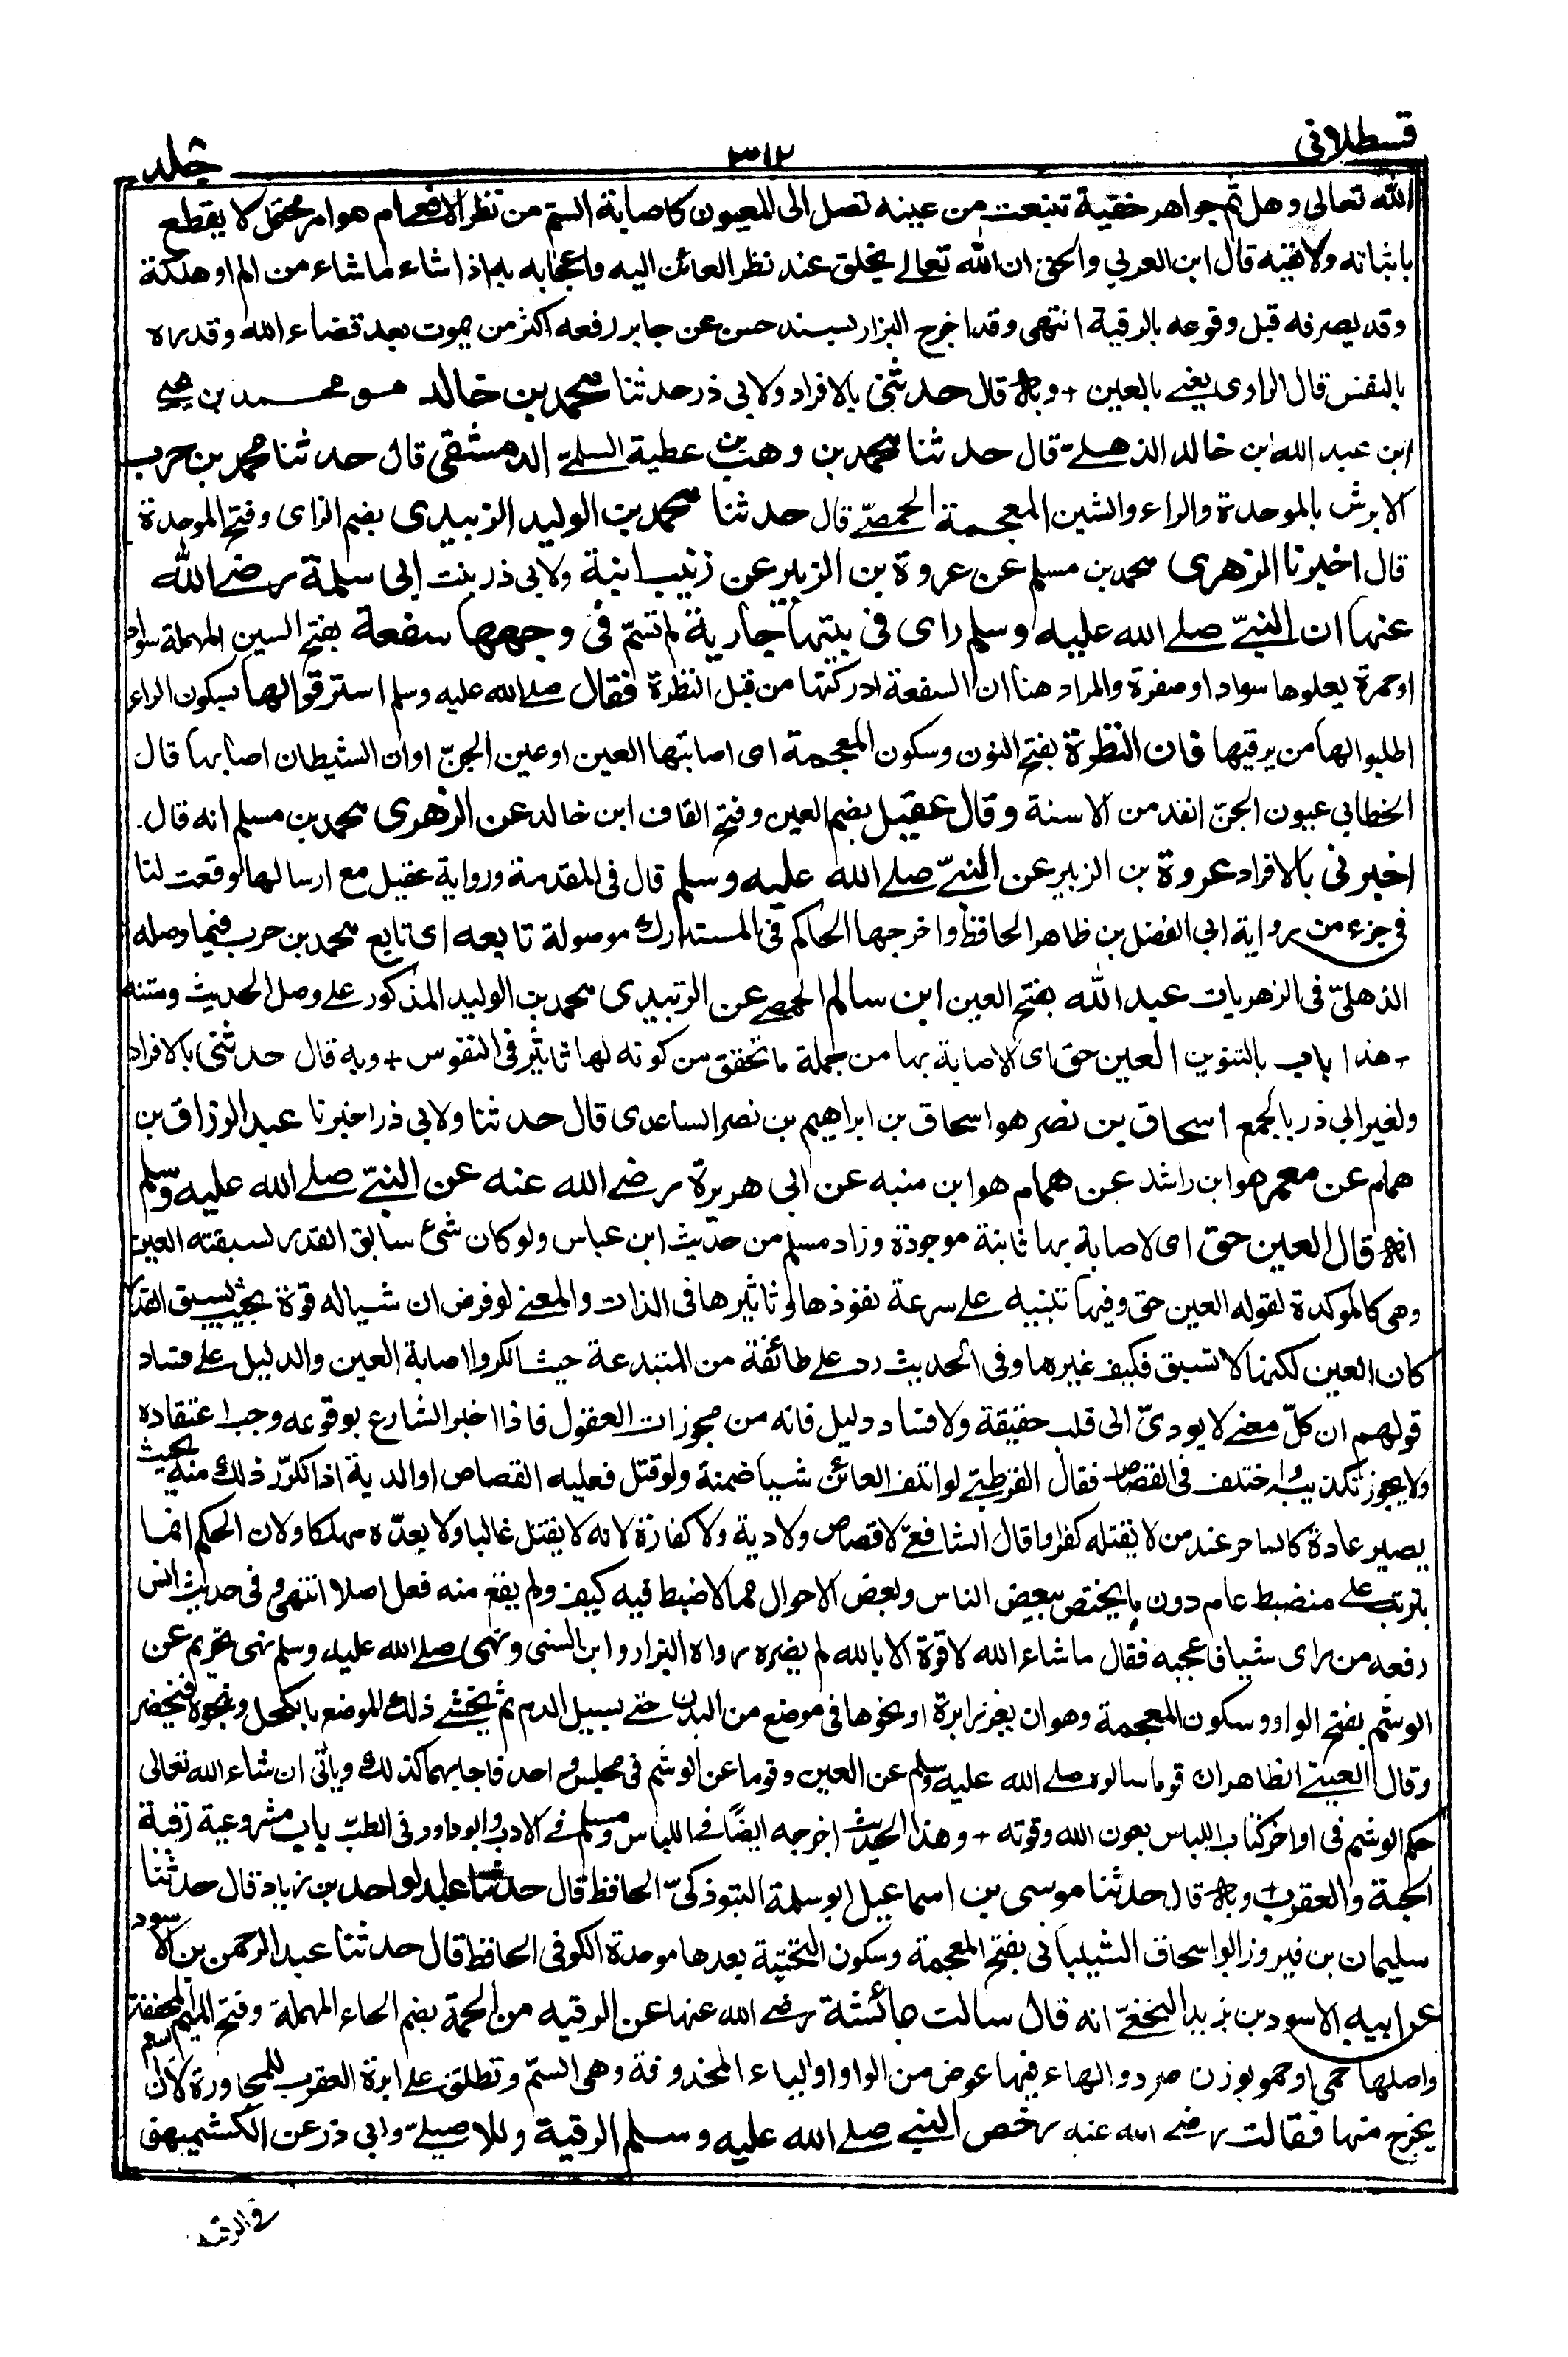 قسطلانی
٣١٢
جلد
الله تعالى وهل ثم جواهر خفية تنبعث من عينه تصل الى المعيون كاصابة السم من نظر الافعى ام هو امر محتمل لا يقطع
باثباته ولا نفيه قال ابن العربي والحق ان الله تعالى يخلق عند نظر العائن اليه واعجابه به اذا شاء ما شاء من الم او هلكة
وقد يصرفه قبل وقوعه بالرقية انتهى وقد اخرج البزار بسند حسن عن جابر رفعه اكثر من يموت بعد قضاء الله وقدره
بالنفس قال الراوى يعنى بالعين + وبه قال حدثنى بالافراد ولابى ذر حدثنا محمد بن خالد هو محمد بن يحيى
ابن عبد الله بن خالد الذهلى قال حدثنا محمد بن وهب بن عطية السلمى الدمشقى قال حدثنا محمد بن حرب
الابرش بالموحدة والراء والشين المعجمة الحمصى قال حدثنا محمد بن الوليد الزبيدى بضم الزاى وفتح الموحدة
قال اخبرنا الزهرى محمد بن مسلم عن عروة بن الزبير عن زينب ابنة ولابى ذر بنت ابى سلمة رضى الله
عنها ان النبى صلى الله عليه وسلم راى فى بيتها جارية لم تسم فى وجهها سفعة بفتح السين المهملة سواد
او حمرة يعلوها سواد او صفرة والمراد هنا ان السفعة ادركتها من قبل النظرة فقال صلى الله عليه وسلم استرقوا لها بسكون الراء
اطلبوا لها من يرقيها فان النظرة بفتح النون وسكون المعجمة اى اصابتها العين او عين الجن او ان الشيطان اصابها قال
الخطابى عيون الجن انفذ من الاسنة وقال عقيل بضم العين وفتح القاف ابن خالد عن الزهرى محمد بن مسلم انه قال
اخبرنى بالافراد عروة بن الزبير عن النبى صلى الله عليه وسلم قال فى المقدمة ورواية عقيل مع ارسالها وقعت لنا
فى جزء من رواية ابى الفضل بن طاهر الحافظ واخرجها الحاكم فى المستدرك موصولة تابعه اى تابع محمد بن حرب فيما وصله
الذهلى فى الزهريات عبد الله بفتح العين ابن سالم الحمصى عن الزبيدى محمد بن الوليد المذكور على وصل الحديث ومتنه
+ هذا باب بالتنوين العين حق اى الاصابة بها من جملة ما تحقق من كونه لها تاثير فى النفوس + وبه قال حدثنى بالافراد
ولغير ابى ذر بالجمع اسحاق بن نصر هو اسحاق بن ابراهيم بن نصر الساعدى قال حدثنا ولابى ذر اخبرنا عبد الرزاق بن
همام عن معمر هو ابن راشد عن همام هو ابن منبه عن ابى هريرة رضى الله عنه عن النبى صلى الله عليه وسلم
انه قال العين حق اى الاصابة بها ثابتة موجودة وزاد مسلم من حديث ابن عباس ولو كان شئ سابق القدر لسبقته العين
وهى كالموكدة لقوله العين حق وفيها تنبيه على سرعة نفوذها وتاثيرها فى الذات والمعنى لو فرض ان شيا له قوة بحيث يسبق القدر
كان العين لكنها لا تسبق فكيف غيرها وفى الحديث رد على طائفة من المبتدعة حيث انكروا اصابة العين والدليل على فساد
قولهم ان كل معنى لا يودى الى قلب حقيقة ولا فساد دليل فانه من مجوزات العقول فاذا اخبر الشارع بوقوعه وجب اعتقاده
ولا يجوز تكذيبه واختلف فى القصاص فقال القرطبى لو اتلف العائن شيا ضمنه ولو قتل فعليه القصاص او الدية اذا تكرر ذلك منه بحيث
يصير عادة كالساحر عند من لا يقتله كفرا وقال الشافعى لا قصاص ولا دية ولا كفارة لانه لا يقتل غالبا ولا يعده مهلكا ولان الحكم انما
يترتب على منضبط عام دون ما يختص ببعض الناس وبعض الاحوال مما لا ضبط فيه كيف ولم يقع منه فعل اصلا انتهى وفى حديث انس
رفعه من راى شيا فاعجبه فقال ما شاء الله لا قوة الا بالله لم يضره رواه البزار وابن السنى ونهى صلى الله عليه وسلم نهى تحريم عن
الوشم بفتح الواو وسكون المعجمة وهو ان يغرز ابرة او نحوها فى موضع من البدن حتى يسيل الدم ثم يحشى ذلك الموضع بالكحل ونحوه فيخضر
وقال العينى الظاهر ان قوما سالوه صلى الله عليه وسلم عن العين وقوما عن الوشم فى مجلس واحد فاجابهما كذلك وياتى ان شاء الله تعالى
حكم الوشم فى اواخر كتاب اللباس بعون الله وقوته + وهذا الحديث اخرجه ايضا فى اللباس ومسلم فى الادب وابو داود فى الطب باب مشروعية رقية
الحية والعقرب + وبه قال حدثنا موسى بن اسماعيل ابو سلمة التبوذكى الحافظ قال حدثنا عبد الواحد بن زياد قال حدثنا
سليمان بن فيروز ابو اسحاق الشيبانى بفتح المعجمة وسكون التحتية بعدها موحدة الكوفى الحافظ قال حدثنا عبد الرحمن بن الاسود
عن ابيه الاسود بن يزيد النخعى انه قال سالت عائشة رضى الله عنها عن الرقية من الحمة بضم الحاء المهملة وفتح الميم المخففة
واصلها حمى او حمو بوزن صرد والهاء فيها عوض من الواو او الياء المحذوفة وهى السم وتطلق على ابرة العقرب للمجاورة لان السم
يخرج منها فقالت رضى الله عنه رخص النبى صلى الله عليه وسلم الرقية وللاصيلى وابى ذر عن الكشميهنى
فى الرقية